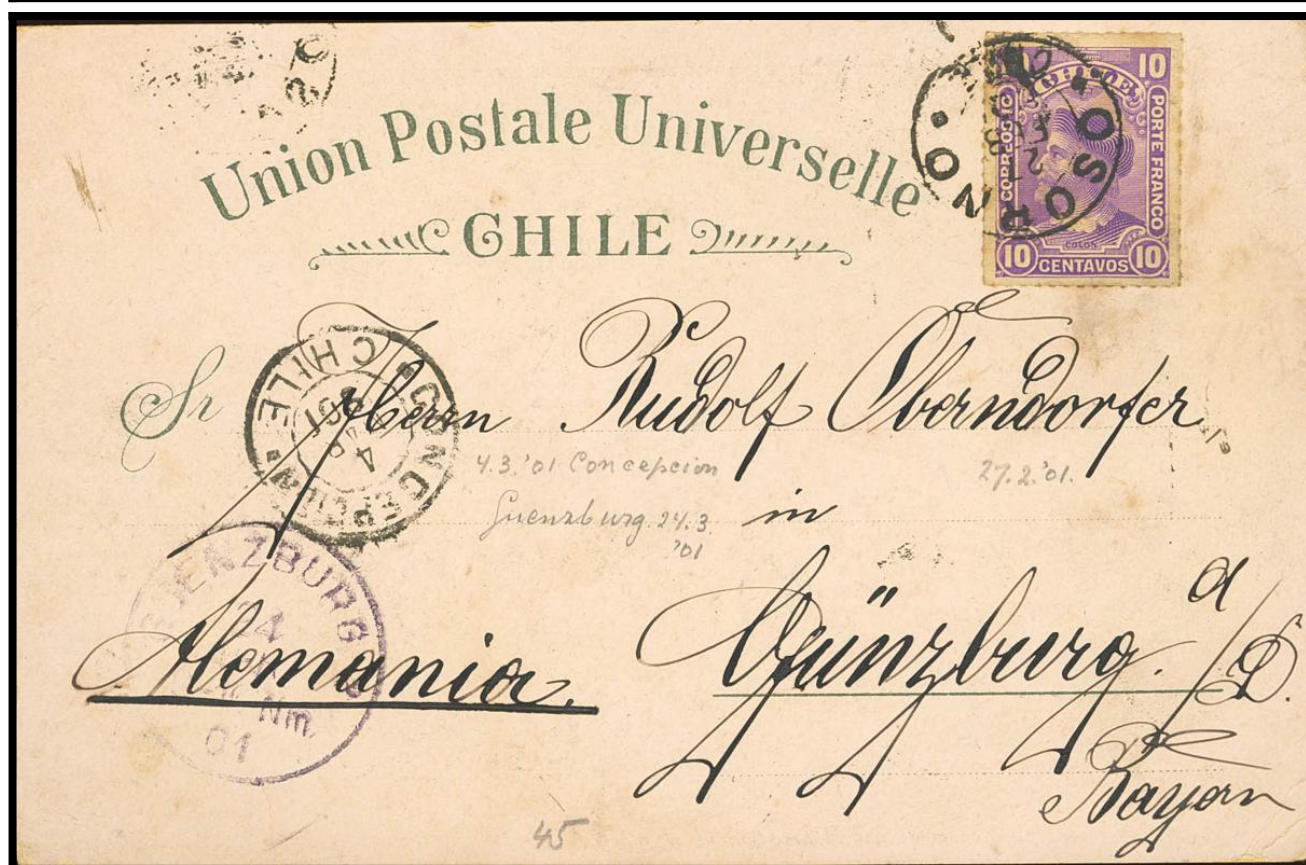 Union Postale Universelle
CHILE
10 10
CHILE
CORREOS
PORTE FRANCO
COLON
10 CENTAVOS 10
OSORNO
27
Sr Herrn Rudolf Oberndorfer
CONCEPCION
CHILE
4
01
4.3.'01 Concepcion
27.2.'01.
Guenzburg 24.3.
'01
in
GUENZBURG
24
Nm.
01
Alemania.
Günzburg. a/D.
Bayern
45